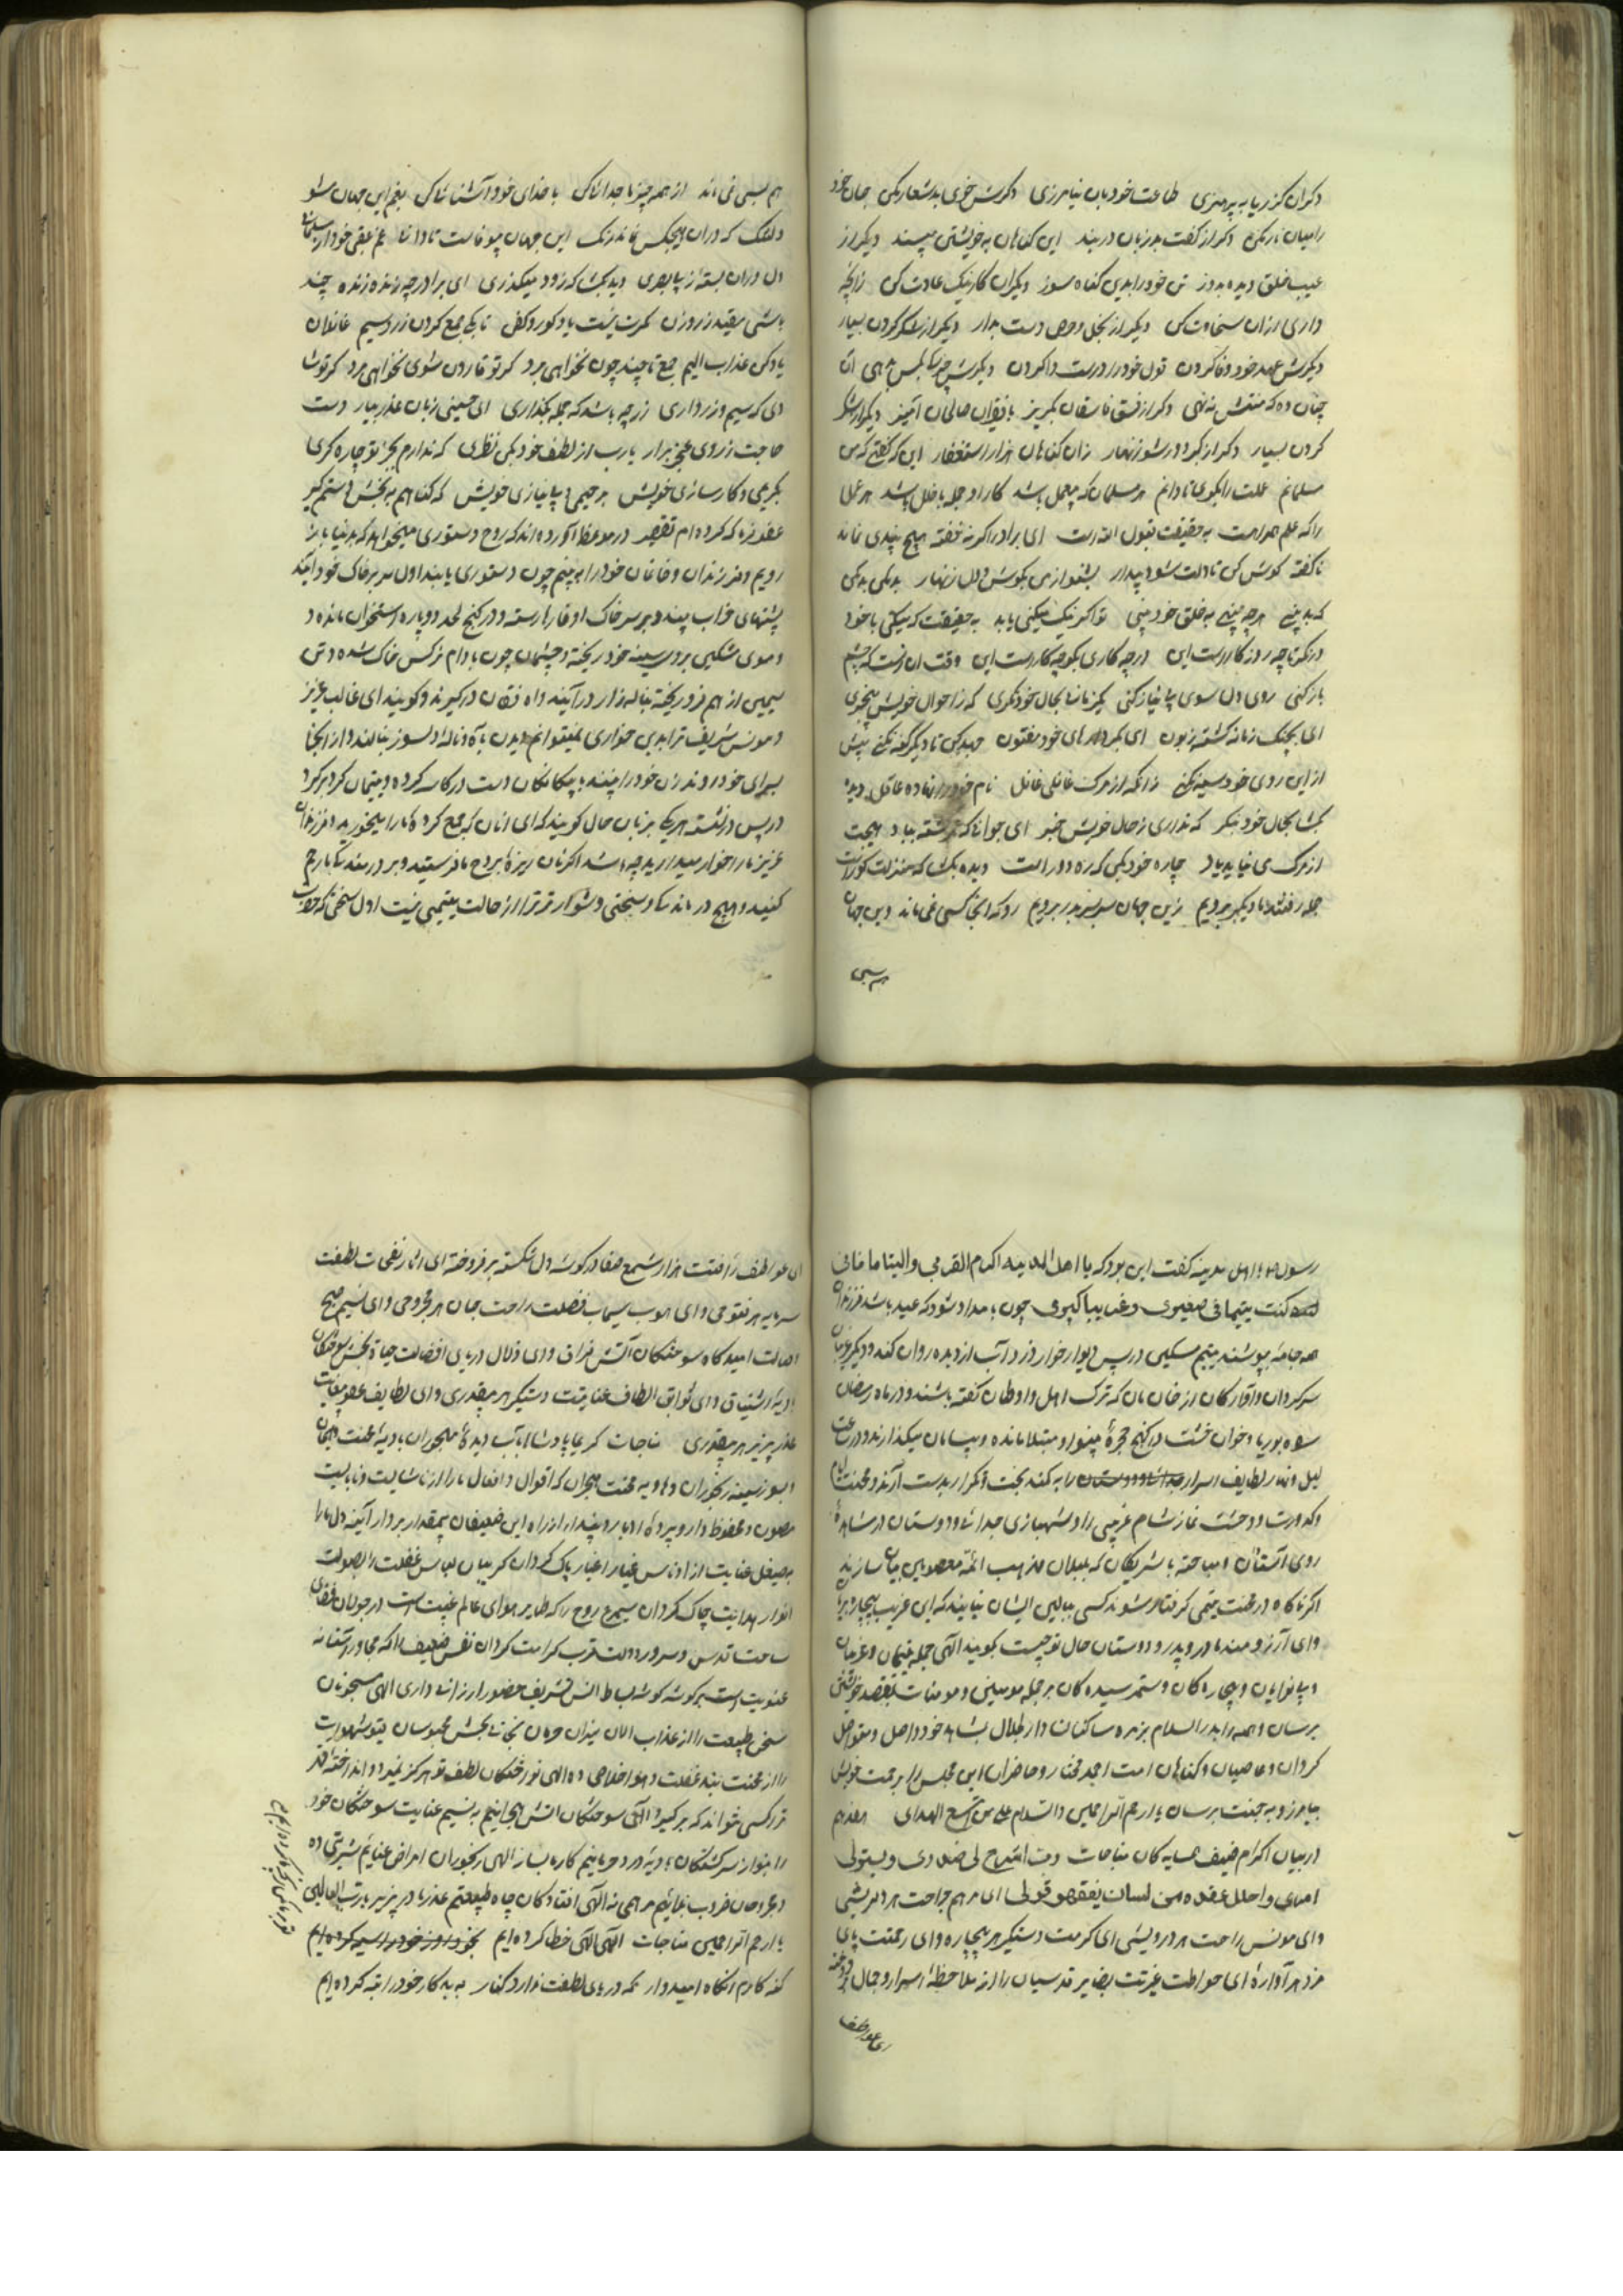 دکران کز ریا به پرهیزی طاعت خود بان نیامرزی دکرش خوی بد شعار مکن جان خود
را میان نار مکن دکر از کفت بد زبان دربند این کناهان به خویشتن مپسند دیکر از
عیب خلق دیده بدوز تن خود را بدین کناه مسوز دیکران کار نیک عادت کن زانچه
داری ازان سخاوت کن دیکر از بخل و حرص دست بدار دیکر از شکر کردن بسیار
دیکرش عهد خود وفا کردن قول خود را درست وا کردن دیکرش چون بکس دهی نان
چنان ده که منتش ننهی دکر از فسق فاسقان بکریز با فقیران صالحان آمیز دیکر از شکر
کردن بسیار دکر از کبر دور شو زنهار زان کناهان هزار استغفار این که کفتی که من
مسلمانم علمت را بکوی تا دانم هر مسلمان که بی عمل باشد کار او جمله با خلل باشد هر عمل
را که علم همراه است به حقیقت قبول الله است ای برادر اکر نه خفته هیچ پندی نماند
ناکفته کوش کن تا دلت شود بیدار بشنو ازمن بکوش دل زنهار بد مکن بد مکن
که بد بینی هر چه بینی به خلق خود بینی تو اکر نیک نیکی یابد به حقیقت که نیکی با خود
در نکر تا چه روز کار است این در چه کاری بکو چه کار است این وقت آن است که چشم
باز کنی روی دل سوی بی نیاز کنی یک زمان بحال خود نکری که ز احوال خویش بیخبری
ای بچنک زمانه کشته زبون ای بکردارهای خود مفتون جهد کن تا دیکر کنه نکنی بیش
از این روی خود سیه نکنی زانکه از مرک غافلی غافل نام خود را نهاده عاقل دیده
بکشا بحال خود بنکر که نداری ز حال خویش خبر ای جوانی که رفته بباد هیچت
از مرک می نیاید یاد چاره خود بکن که ره دور است دیده بکشا که منزلت کور است
جمله رفتند تا دیکر برویم زین جهان سر بسر بدر برویم رو که اینجا کسی نمی ماند وین جهان
هم بسی
هم بسی نمی ماند از همه چیزها جدا باش با خدای خود آشنا باش بغم این جهان مشو
دلتنک که دران هیچکس نماند رنک این جهان بیوفاست تا دانی غم عقبی خور ار مسلمانی
دل دران بسته ز بیبصری دیده بکشا که زود میکذری ای برادر چه زنده زنده چند
باشی بقید زر و زن کمرت نیست یاد کور و کفن تا بکی جمع کردن زر و سیم غافلان
یاد کن عذاب الیم جمع تا چند چون نخواهی برد کر تو قارون شوی نخواهی مرد کر تو شاد
دلی که سیم و زر داری زر چه باشد که جمله بکذاری ای حسینی زبان عذر بیار دست
حاجت ز روی عجز برار یا رب از لطف خود بکن نظری که ندارم بجز تو چاره کری
بکریمی و کارسازی خویش برحیمی و بی نیازی خویش که کناهم به بخش و دستم کیر
عفو فرما که کرده ام تقصیر در موعظ آورده اند که روح دستوری میخواهد که بدنیا باز
رویم و فرزندان و خانمان خود را به بینم چون دستوری یابند اول بر سر خاک خود آیند
پشتهای خراب بینند و بر سر خاک او خارها رسته و در کنج لحد دو پاره استخوان مانده
و موی مشکین بر روی سینه خود ریخته و چشمان چون بادام نرکس خاک شده و تن
سیمین از هم فرو ریخته بناله زار در آیند و آه و فغان درکیرند و کویند ای غالب عزیز
و مونس شریف ترا بدین خواری نمیتوانم دیدن با آه و ناله دلسوز بنالند و از انجا
بسرای خود روند زن خود را بینند با بیکانکان دست در کاسه کرده و یتیمان کرد بر کرد
در پس در نشسته هریکی بزبان حال کویند که ای انان که جمع کرده ما را میخورید و فرزندان
عزیز ما را خوار میدارید چه باشد اکر نان ریزه بروح ما فرستید و بر درمندی ما رحم
کنید و هیچ درماندکی و سختی و دشوار تر از حالت یتیمی نیست اول سخنی که حضرت
رسول ص با اهل مدینه کفت این بود که یا اهل المدینه اکرم القربی والیتاما فانی
کنت یتیما فی صغیری و غریبا کبیری چون بامداد شود که عید باشد فرزندان
همه جامه بپوشند یتیم مسکین در پس دیوار خوار و زار آب از دیده روان کند و دیکر غریبان
سرکردان و آوارکان از خان مان که ترک اهل و اوطان کفته باشند و در ماه رمضان
سوه بوریا و خوان خشت در کنج حجره بینوا و مبتلا مانده و بیسامان میکذارند و در ساعت
لیل و نهار لطایف اسرار را به کمند بحث و تکرار بدست آرند و محنت ایام
و کدورت و وحشت نماز شام غریبی را و شبهای جدائی و دوستان در مشاهده
روی آستان و مباحثه با شریکان که بلبلان مذهب ائمه معصومین بیان سازند
اکر ناکاه در محنت یتیمی کرفتار شوند کسی ببالین ایشان نیاید که ای غریب بیچاره
و ای آرزومند مادر و پدر و دوستان حال تو چیست بکویند الهی جمله یتیمان و غریبان
و بینوایان و بیچارکان و ستم رسیده کان بر جمله مومنین و مومنات بمقصد خویشتن
برسان و همه را بدار السلام بزمره ساکنان دار ظلال بشاهد خود واصل و متواصل
کردان و عاصیان و کناهان امت احمد مختار و حاضران این مجلس را برحمت خویش
بیامرز و به جنت برسان یا ارحم الراحمین والسلام علی من اتبع الهدای هفدهم
در بیان اکرام ضیف همسایه کان مناجات رب اشرح لی صدری و یسر لی
امری و احلل عقدة من لسان یفقهو قولی ای مرهم جراحت هر دلریشی
و ای مونس راحت هر درویشی ای کرمت دستکیر هر بیچاره و ای رحمتت پای
مزد هر آواره ای حواطت غیرتت بصایر قدسیان را از ملاحظه اسرار و جمال
ای عواطف
ای عواطف رأفتت هزار شمع صفا در کوشه دل شکسته بر فروخته ای اثار نفحات لطفت
سرمایه هر مفتوحی و ای هبوب سحاب فضلت راحت جان هر مجروحی و ای نسیم صبح
وصالت امیدکاه سوختکان آتش فراق و ای زلال دریای افضالت حیات بخش سوختکان
بادیه اشتیاق و ای لواحق الطاف عنایتت دستکیر هر بیقدری و ای لطایف عفو بیغایت
عذر پذیر هر بیقدری مناجات کریما پادشاها بآب دیده مهجوران بادیه محنت و هجران
و بسوز سینه رنجوران هاویه محنت هجران که اقوال و افعال ما را از ناشایست و نابایست
مصون و محفوظ دار و پرده ادبار و پندار از راه این ضعیفان بیمقدار بردار آینه دل ما را
بصیقل عنایت از ادناس غبار اغیار پاک کردان کریبان لباس غفلت را بصولت
انوار هدایت چاک کردان سیمرغ روح را که طایر هوای عالم غیب است در جولان فضای
ساحت قدس و سرور دولت قرب کرامت کردان نفس ضعیف را که مجاور آستانه
عبودیت است بر کوشه کوشه بساط انس تشریف حضور ارزانی داری الهی مسجونان
سجن طبیعت را از عذاب الان نیران حرمان نجات بخش محبوسان قید شهوات
را از محنت بند غفلت و هوا خلاصی ده الهی نور خستکان لطف تو هرکز نمیرد و انداخته قهر
ترا کسی نتواند که بر کیرد الهی سوختکان اتش هجرانیم به نسیم عنایت سوختکان خود
را بنواز سرکشتکان بادیه درد حرمانیم کار ما بساز الهی رنجوران امراض عنایم شربتی ده
و مجروحان ضرب بلائیم مرهمی نه الهی افتادکان چاه طبیعتیم عذر ما در پذیر یا رب العالمین
یا ارحم الراحمین مناجات الهی الهی خطا کرده ایم بخود روز خود را سیه کرده ایم
کنه کارم انکاه امیدوار که دریای لطفت ندارد کنار به بد کار خود را تبه کرده ایم